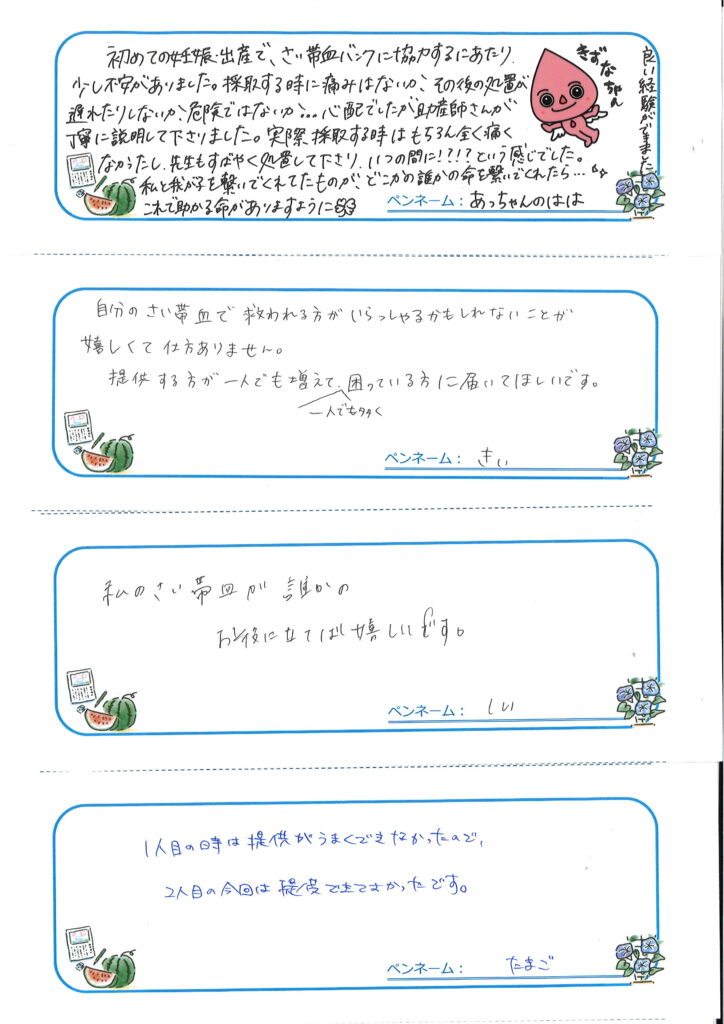 初めての妊娠・出産で、さい帯血バンクに協力するにあたり、
少し不安がありました。採取する時に痛みはないか、その後の処置が
遅れたりしないか、危険ではないか…心配でしたが助産師さんが
丁寧に説明して下さりました。実際採取する時はもちろん全く痛く
なかったし、先生もすばやく処置して下さり、いつの間に!?!?という感じでした。
私と我が子を繋いでくれてたものが、どこかの誰かの命を繋いでくれたら…
これで助かる命がありますように
きずなちゃん
良い経験ができました
ペンネーム： あっちゃんのはは
自分のさい帯血で救われる方がいらっしゃるかもしれないことが
嬉しくて仕方ありません。
提供する方が一人でも増えて、困っている方に届いてほしいです。
一人でも多く
ペンネーム： きい
私のさい帯血が誰かの
お役に立てば嬉しいです。
ペンネーム： しい
1人目の時は提供がうまくできなかったので、
2人目の今回は提供できてよかったです。
ペンネーム： たまご